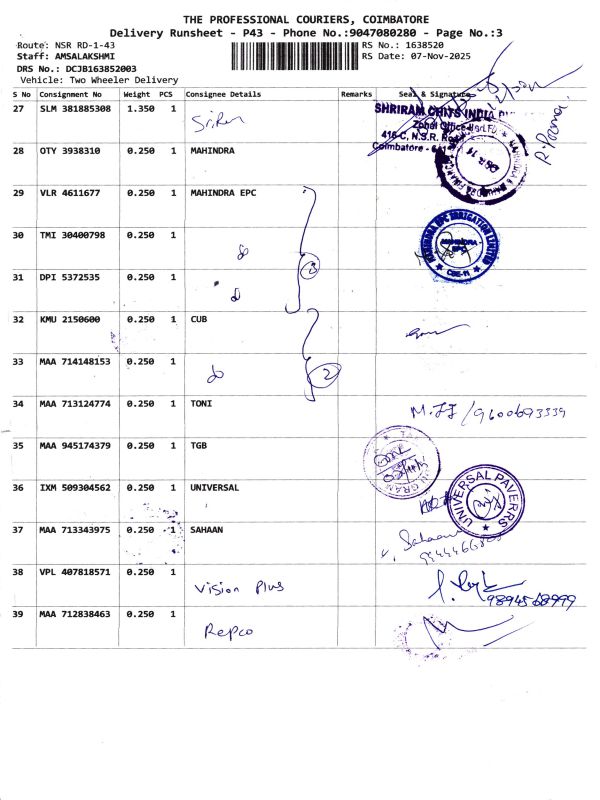 THE PROFESSIONAL COURIERS, COIMBATORE
Delivery Runsheet - P43 - Phone No.:9047080280 - Page No.:3
Route: NSR RD-1-43 RS No.: 1638520
Staff: AMSALAKSHMI RS Date: 07-Nov-2025
DRS No.: DCJB163852003
Vehicle: Two Wheeler Delivery
S No Consignment No Weight PCS Consignee Details Remarks Seal & Signature
27 SLM 381885308 1.350 1
SHRIRAM CHITS INDIA
Zonal Office
416-C, N.S.R. R
Coimbatore - 641
28 OTY 3938310 0.250 1 MAHINDRA
29 VLR 4611677 0.250 1 MAHINDRA EPC
MAHINDRA EPC IRRIGATION LIMITED
MAHINDRA
EPC
CBE-11
30 TMI 30400798 0.250 1
do
31 DPI 5372535 0.250 1
do
32 KMU 2150600 0.250 1 CUB
33 MAA 714148153 0.250 1
do 2
34 MAA 713124774 0.250 1 TONI
9600693339
35 MAA 945174379 0.250 1 TGB
36 IXM 509304562 0.250 1 UNIVERSAL
UNIVERSAL PAVERRS
37 MAA 713343975 0.250 1 SAHAAN
Sahaan
38 VPL 407818571 0.250 1 Vision Plus
9894568999
39 MAA 712838463 0.250 1 Repco